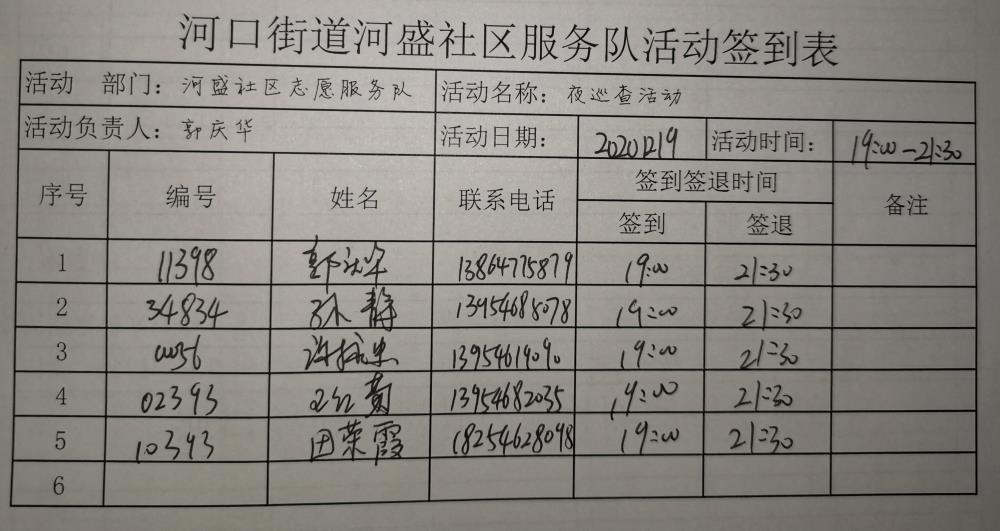 河口街道河盛社区服务队活动签到表
活动 部门: 河盛社区志愿服务队 活动名称: 夜巡查活动
活动负责人: 郭庆华 活动日期: 20201219 活动时间: 19:00-21:30
序号 编号 姓名 联系电话 签到签退时间 备注
签到 签退
1 11398 郭庆华 13864775879 19:00 21:30
2 34834 孙静 19:00 21:30
3 19:00 21:30
4 02393 13954682035 19:00 21:30
5 10393 田荣霞 18254628098 19:00 21:30
6